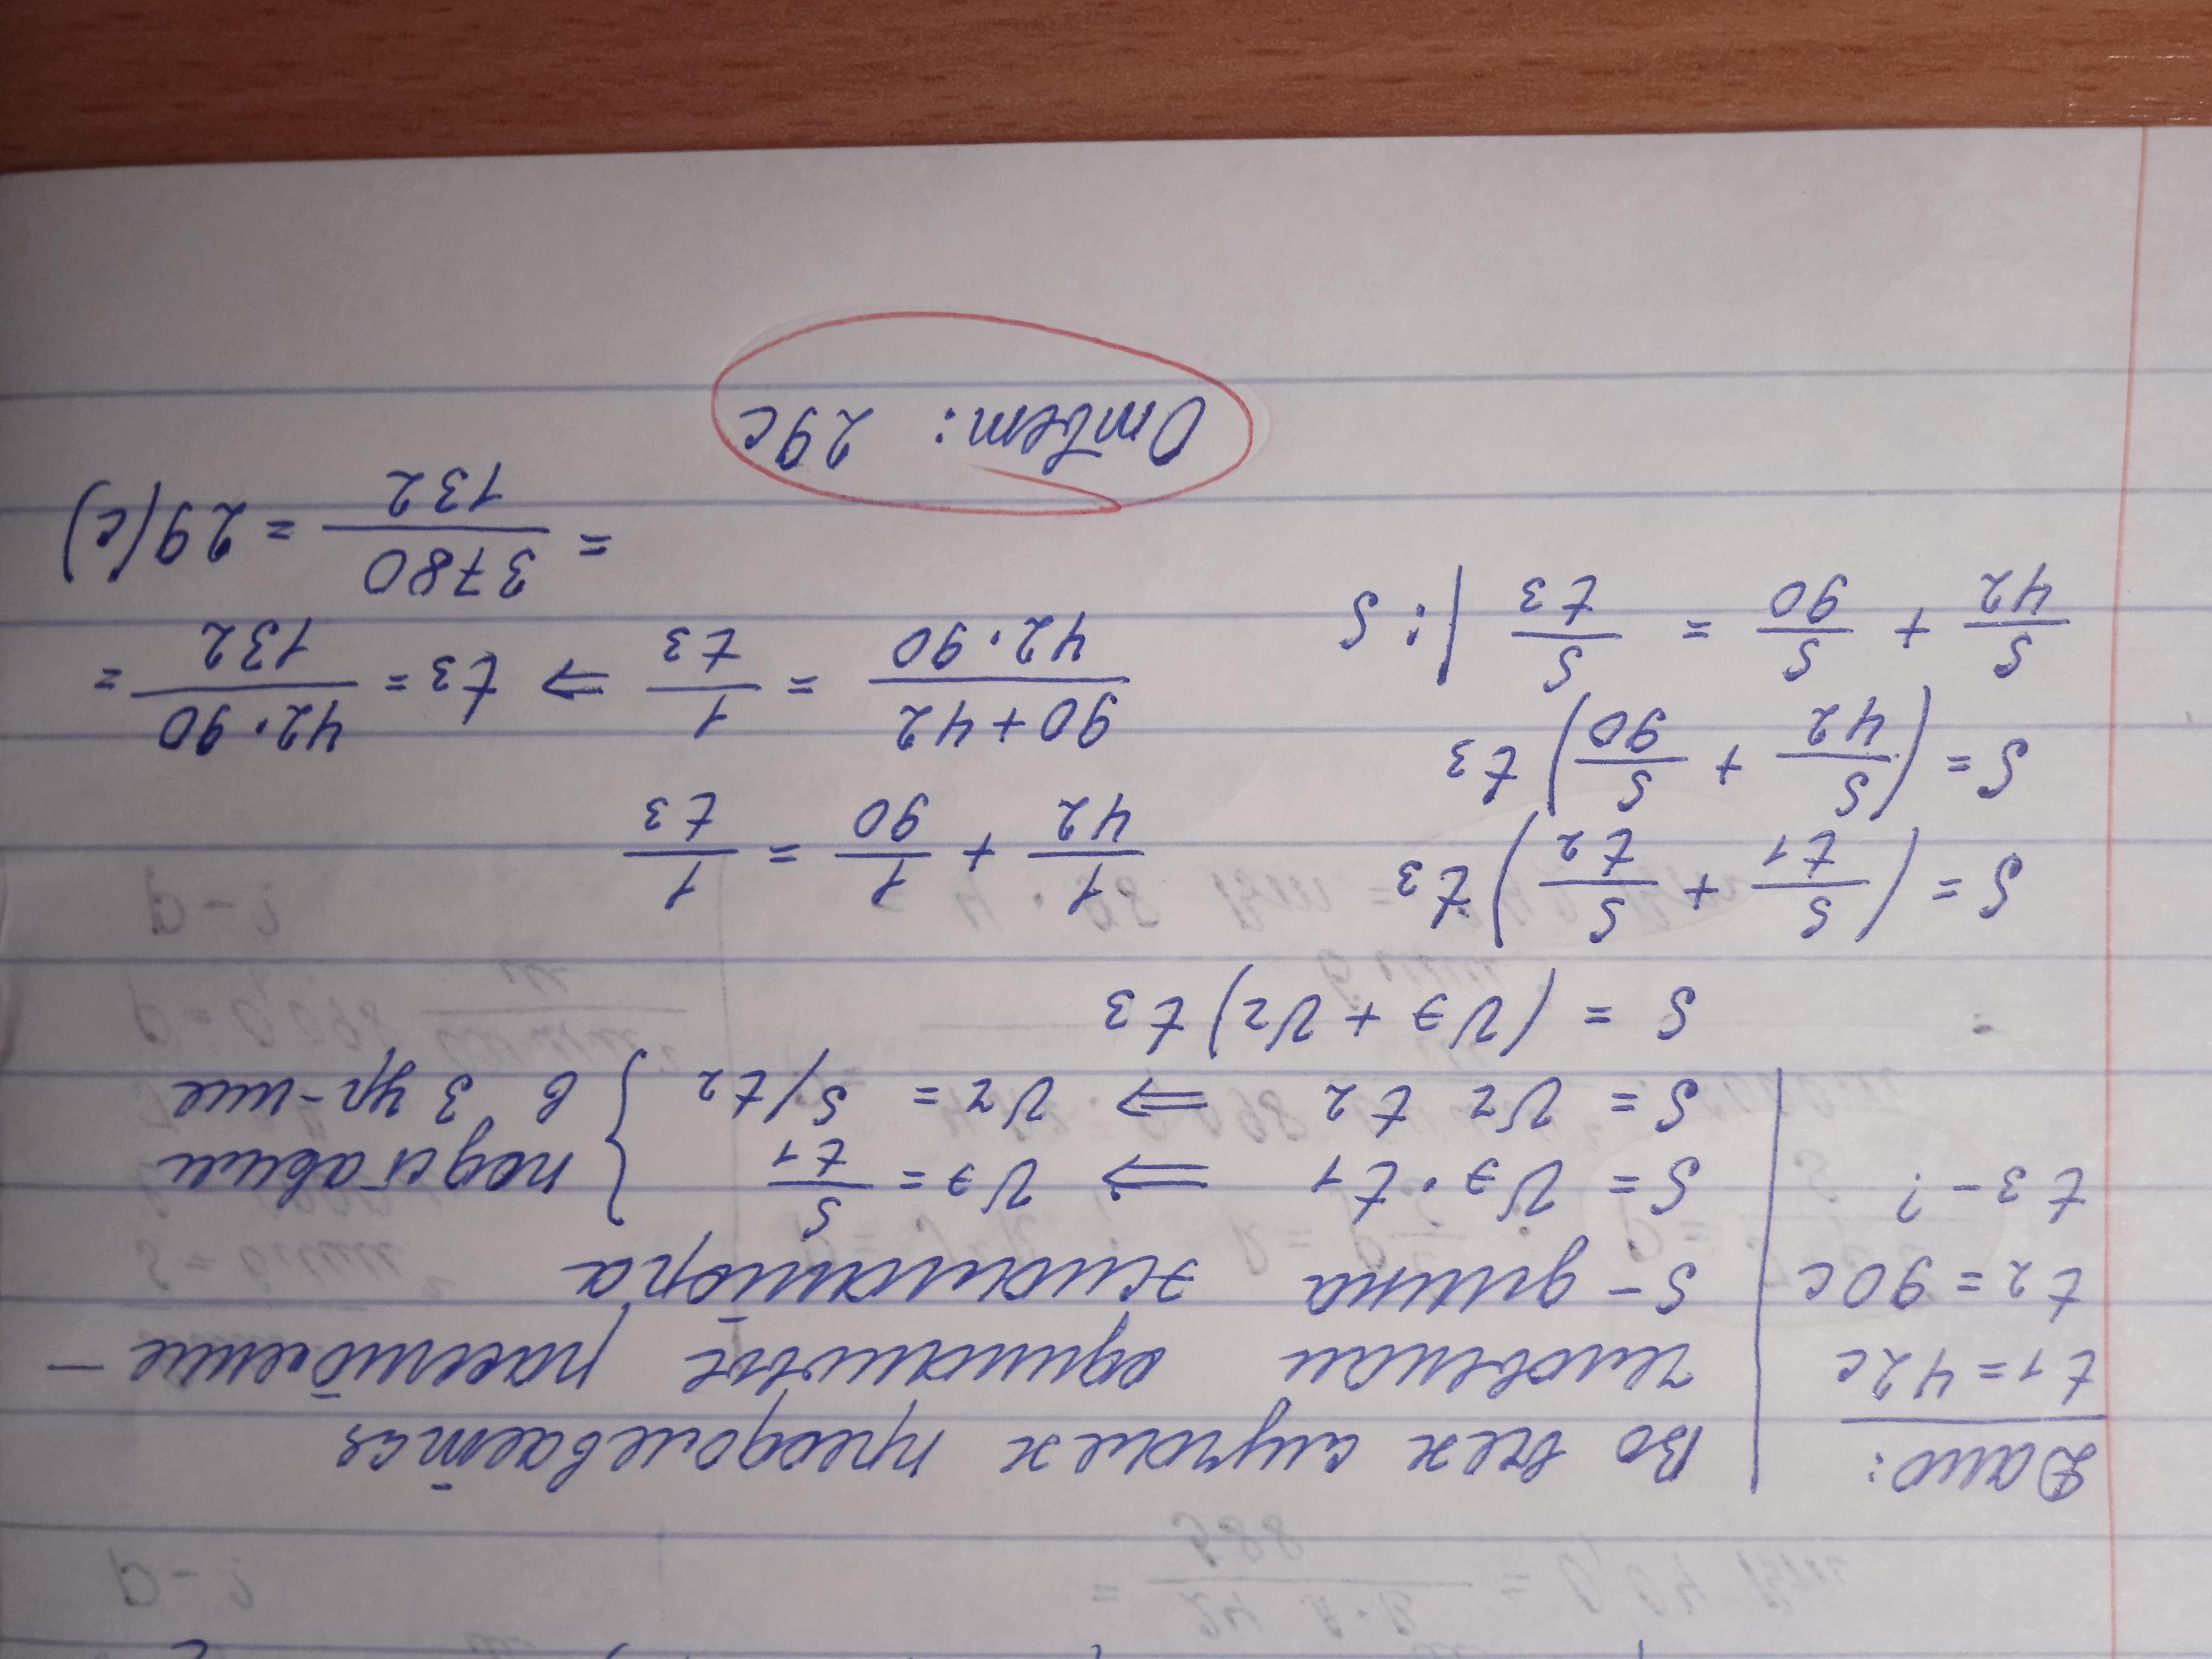 Дано:
t1 = 42с
t2 = 90с
t3 - ?
Во всех случаях преодолевается
человеком одинаковое расстояние —
S - длина эскалатора
S = Vэ · t1 ⇒ Vэ = S/t1 } подставим
S = Vч t2 ⇒ Vч = S/t2 } в 3 ур-ние
S = (Vэ + Vч) t3
S = (S/t1 + S/t2) t3
S = (S/42 + S/90) t3
S/42 + S/90 = S/t3 | : S
1/42 + 1/90 = 1/t3
90 + 42/42 · 90 = 1/t3 ⇒ t3 = 42 · 90/132 =
= 3780/132 = 29(с)
Ответ: 29с